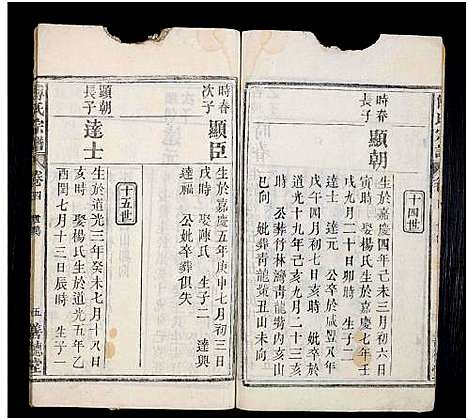 十四世
時春
長子
顯朝
生於嘉慶四年己未三月六日
寅時 娶楊氏生於嘉慶七年壬
戌九月二十日時 生子二
達士 達元 公卒於咸豐又丁
戊午四月初七日亥時 妣卒於
道光十九年己亥十二月初三日
時 公葬竹林灣青龍嘴內亥
巳向 妣葬青龍嘴丑山未向
時春
次子
顯臣
生於嘉慶五年庚申七月初三日
戌時 娶陳氏 生子二 達興
達福 公妣卒葬俱失
十五世
顯朝
長子
達士
生於道光三年癸未七月十八日
亥時 娶楊氏生於道光五年乙
酉閏七月十三日辰時 生子二
氏宗譜
卷四
五
善述堂